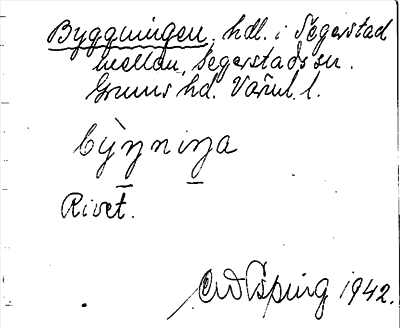 Byggningen, hdl. i Segerstad
mellan, Segerstads sn.
Grums hd. Värml. l.
bỳŋniŋa
Rivet.
1942.